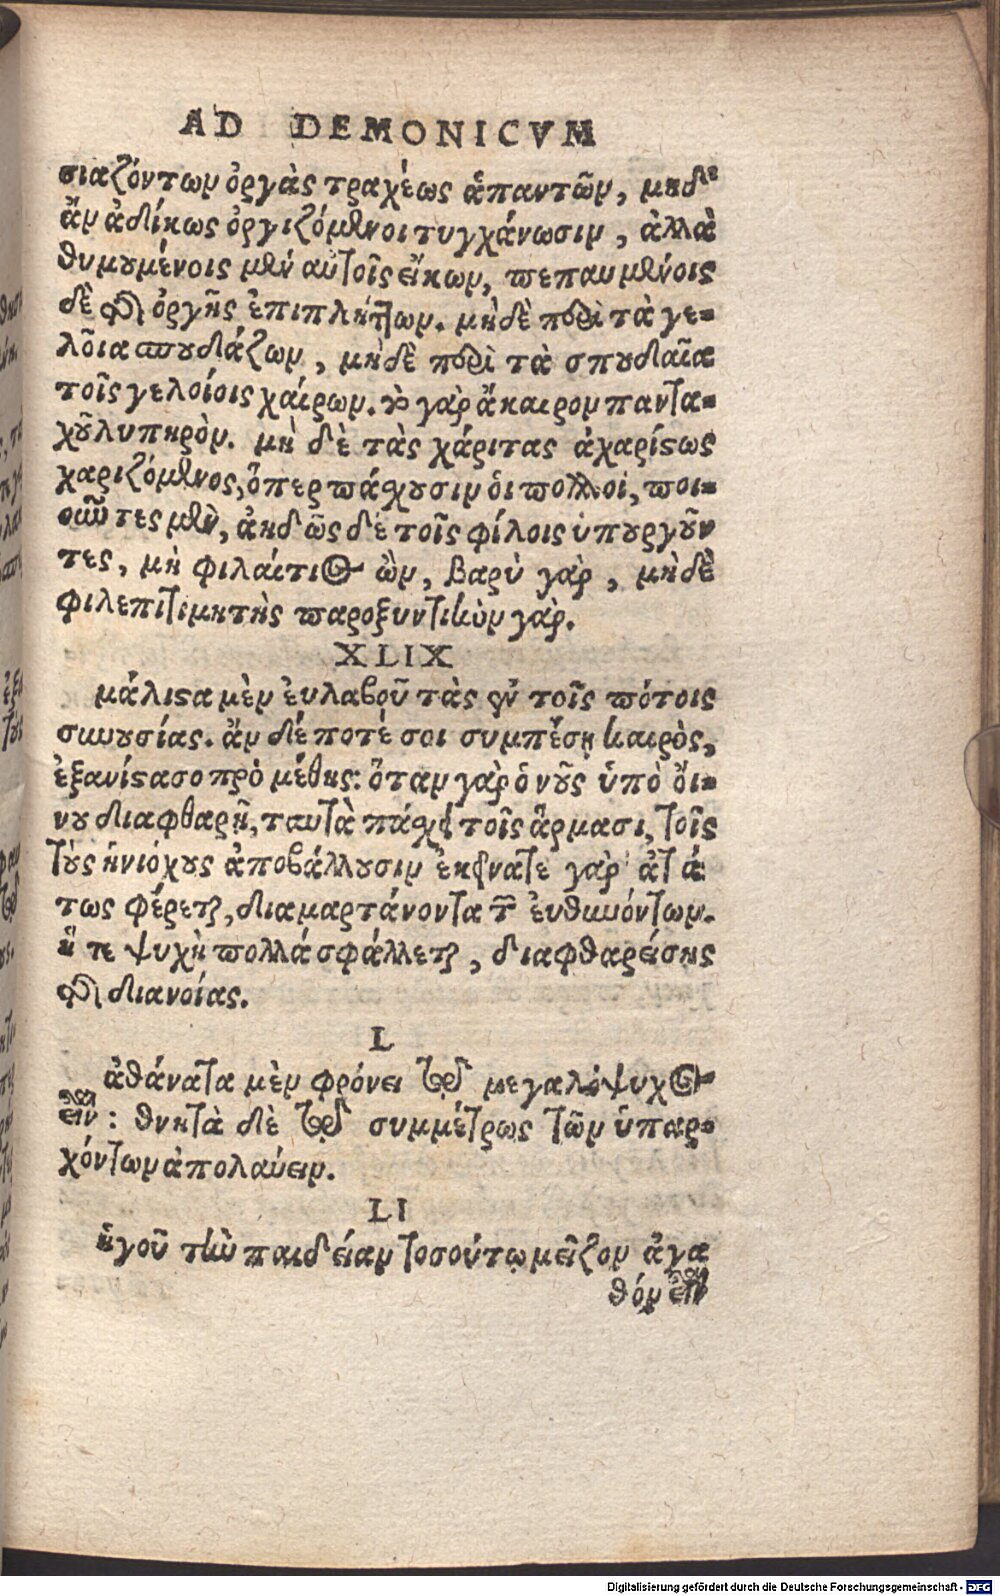 AD DEMONICVM
σιαζόντων ὀργὰς τραχέως ἁπαντῶν, μηδ'
ἂν ἀδίκως ὀργιζόμενοι τυγχάνωσιν, ἀλλὰ
θυμουμένοις μὲν αὐτοῖς εἴκων, πεπαυμένοις
δὲ τῆς ὀργῆς ἐπιπλήττων. μηδὲ περὶ τὰ γε-
λοῖα σπουδάζων, μηδὲ περὶ τὰ σπουδαῖα
τοῖς γελοίοις χαίρων. τὸ γὰρ ἄκαιρον παντα-
χοῦ λυπηρὸν. μὴ δὲ τὰς χάριτας ἀχαρίστως
χαριζόμενος, ὅπερ πάσχουσιν ὁι πολλοὶ, ποι-
οῦντες μὲν, ἀηδῶς δὲ τοῖς φίλοις ὑπουργοῦν
τες, μὴ φιλαίτιος ὢν, βαρὺ γὰρ, μηδὲ
φιλεπιτιμητὴς παροξυντικὸν γὰρ.
XLIX
μάλιστα μὲν ἐυλαβοῦ τὰς ἐν τοῖς πότοις
συνουσίας. ἂν δέ ποτέ σοι συμπέσῃ καιρὸς,
ἐξανίστασο πρὸ μέθης: ὅταν γὰρ ὁ νοῦς ὑπὸ ὄι-
νου διαφθαρῇ, ταυτὰ πάσχει τοῖς ἅρμασι, τοῖς
τοὺς ἡνιόχους ἀποβάλλουσιν ἐκεῖνά τε γὰρ ἀτά
τως φέρεται, διαμαρτάνοντα τῶν ἐυθυνόντων.
ἥ τε ψυχὴ πολλὰ σφάλλεται, διαφθαρείσης
τῆς διανοίας.
L
ἀθάνατα μὲν φρόνει τῷ μεγαλόψυχος
εἶναι: θνητὰ δὲ τῷ συμμέτρως τῶν ὑπαρ-
χόντων ἀπολαύειν.
LI
ἡγοῦ τὴν παιδείαν τοσούτῳ μεῖζον ἀγα
θόν εἶναι